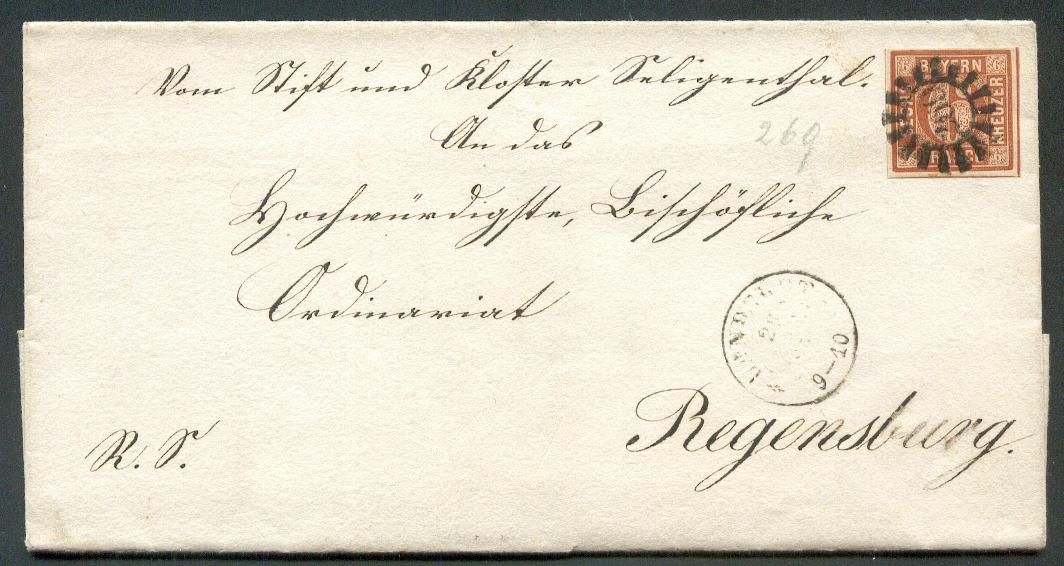 Vom Stift und Kloster Seligenthal.
An das
Hochwürdigste, Bischöfliche
Ordinariat
Regensburg.
R. S.
269
BAYERN
KREUZER
FRANCO
6
LANDSHUT
9–10